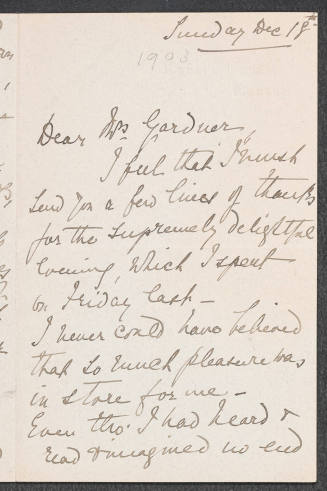 Sunday Dec 18th
1903
Dear Mrs Gardner,
I feel that I must
send you a few lines of thanks
for the supremely delightful
Evening, which I spent
on Friday last –
I never could have believed
that so much pleasure was
in store for me –
Even tho' I had heard &
read & imagined no end